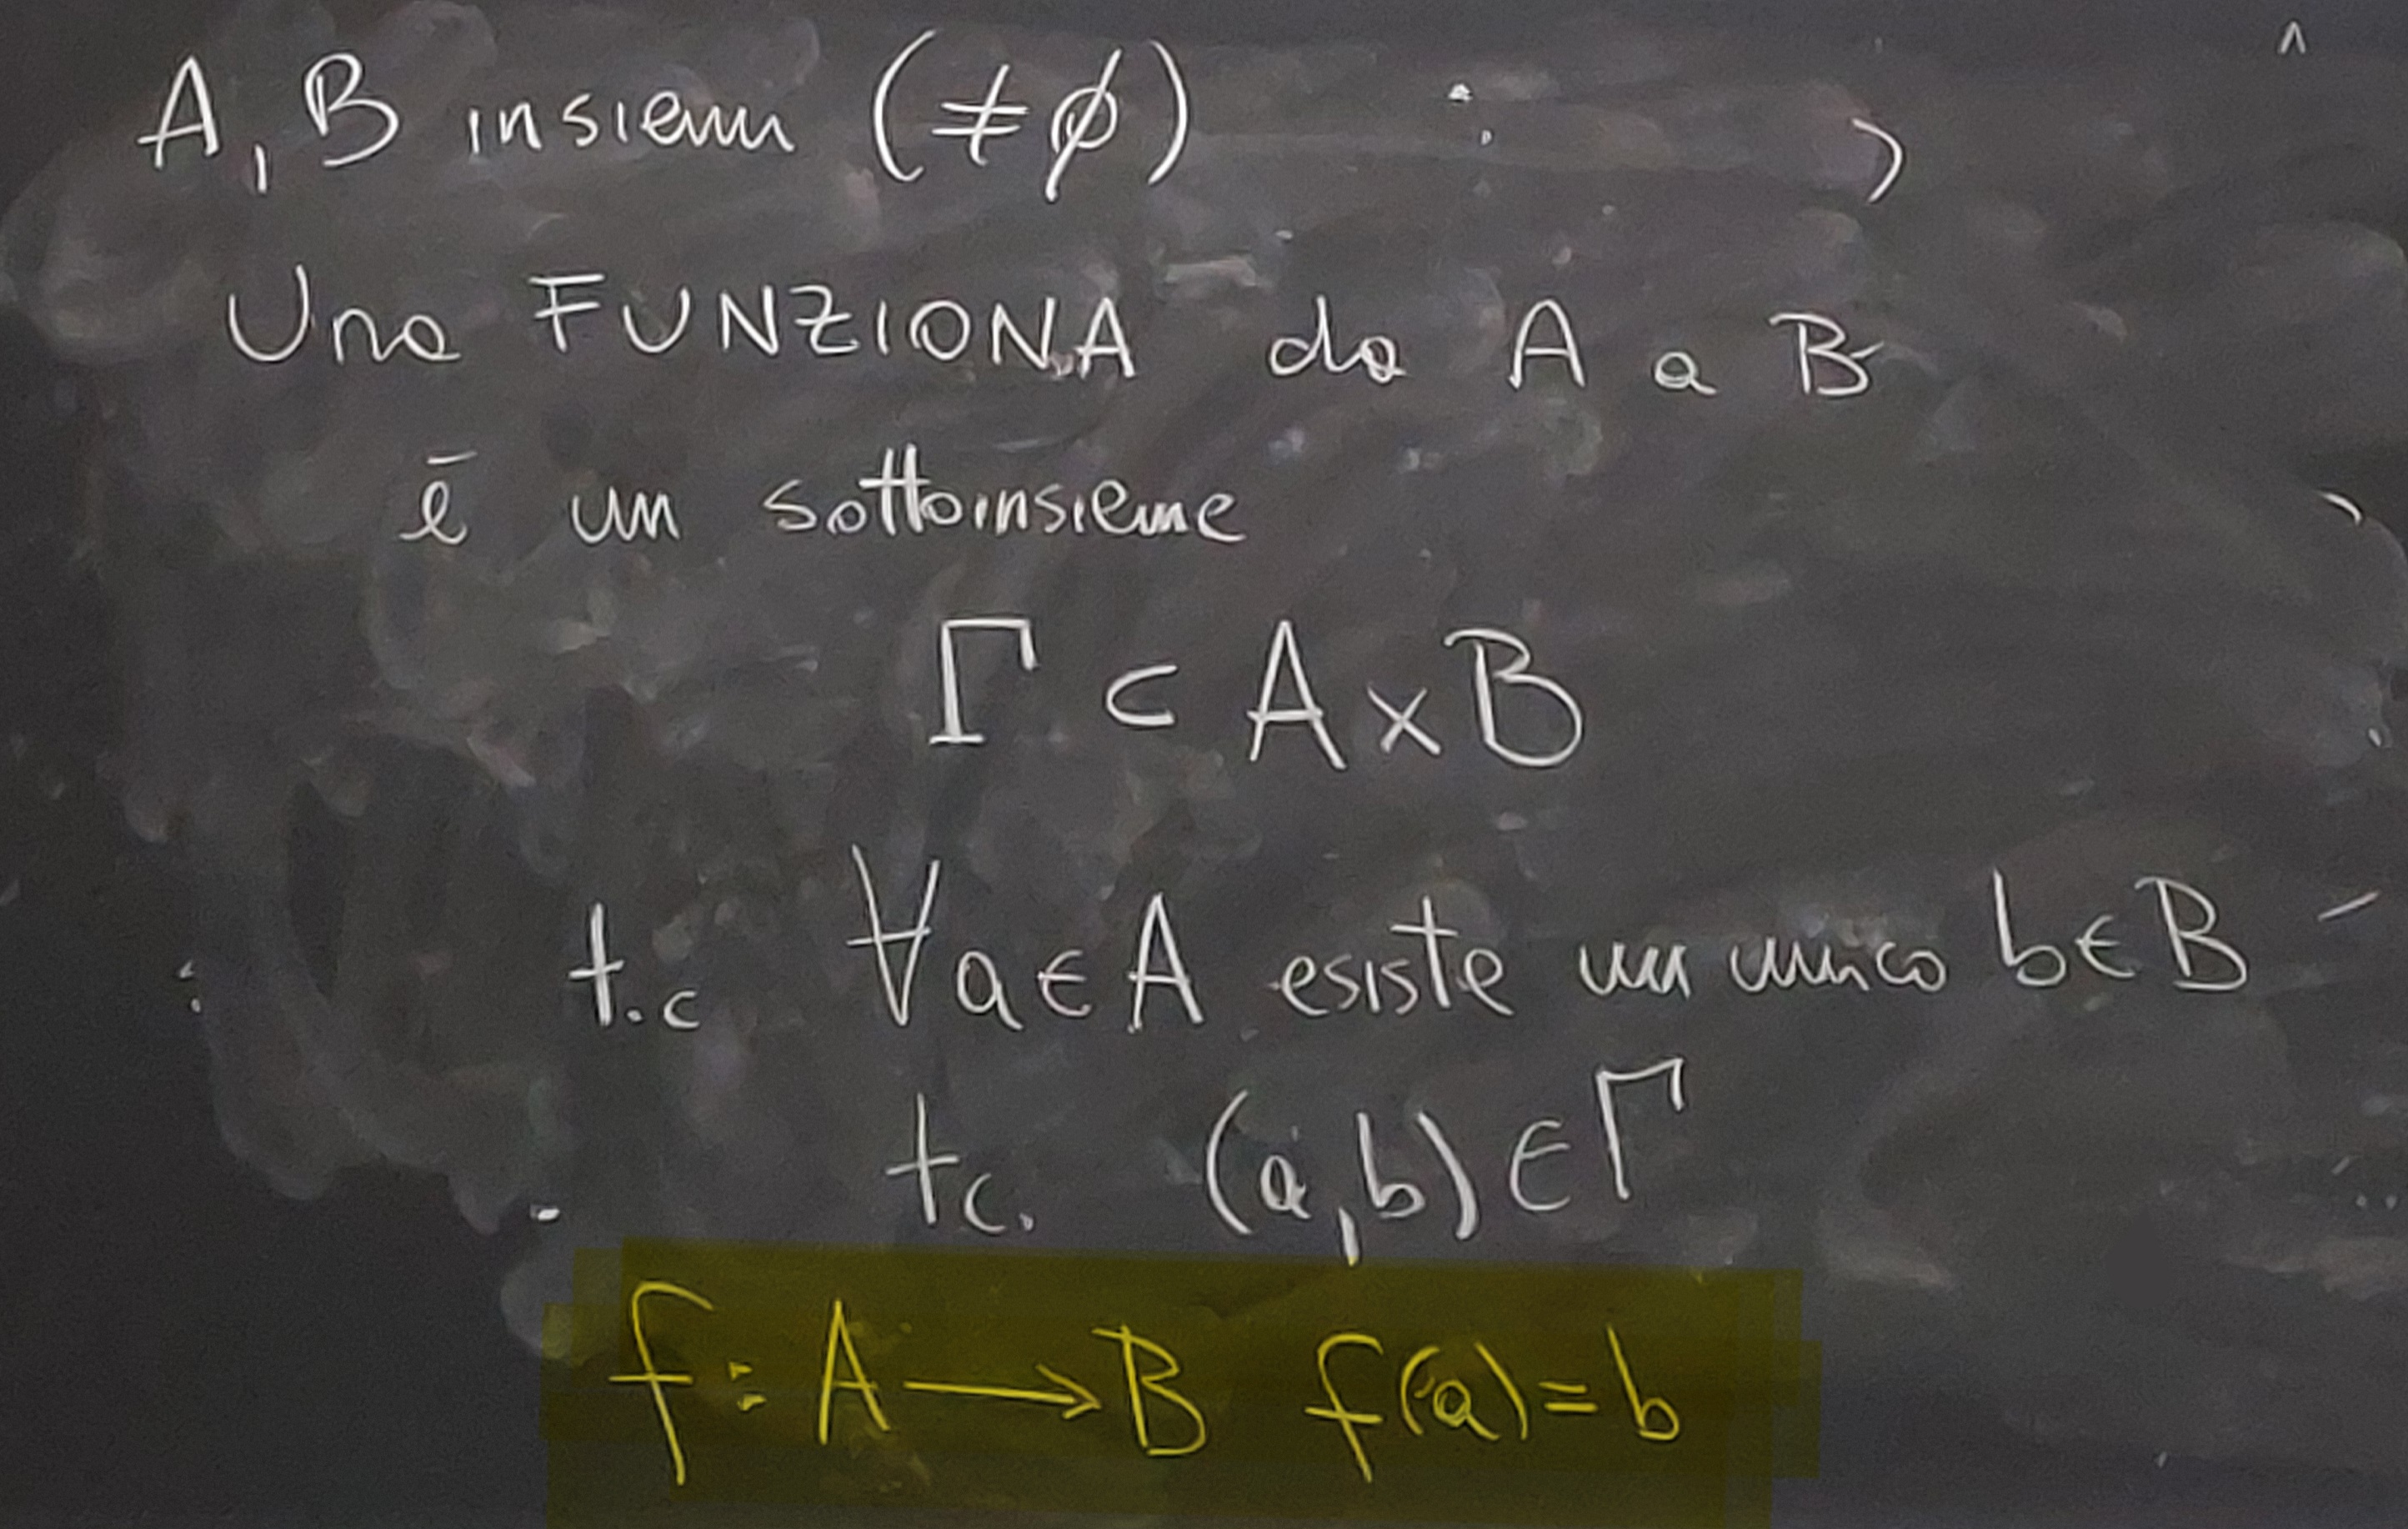 A, B insiemi (≠∅)
Una FUNZIONA da A a B
è un sottoinsieme
Γ ⊂ A×B
t.c ∀a∈A esiste un unico b∈B
tc. (a,b)∈Γ
f: A ⟶ B f(a)=b